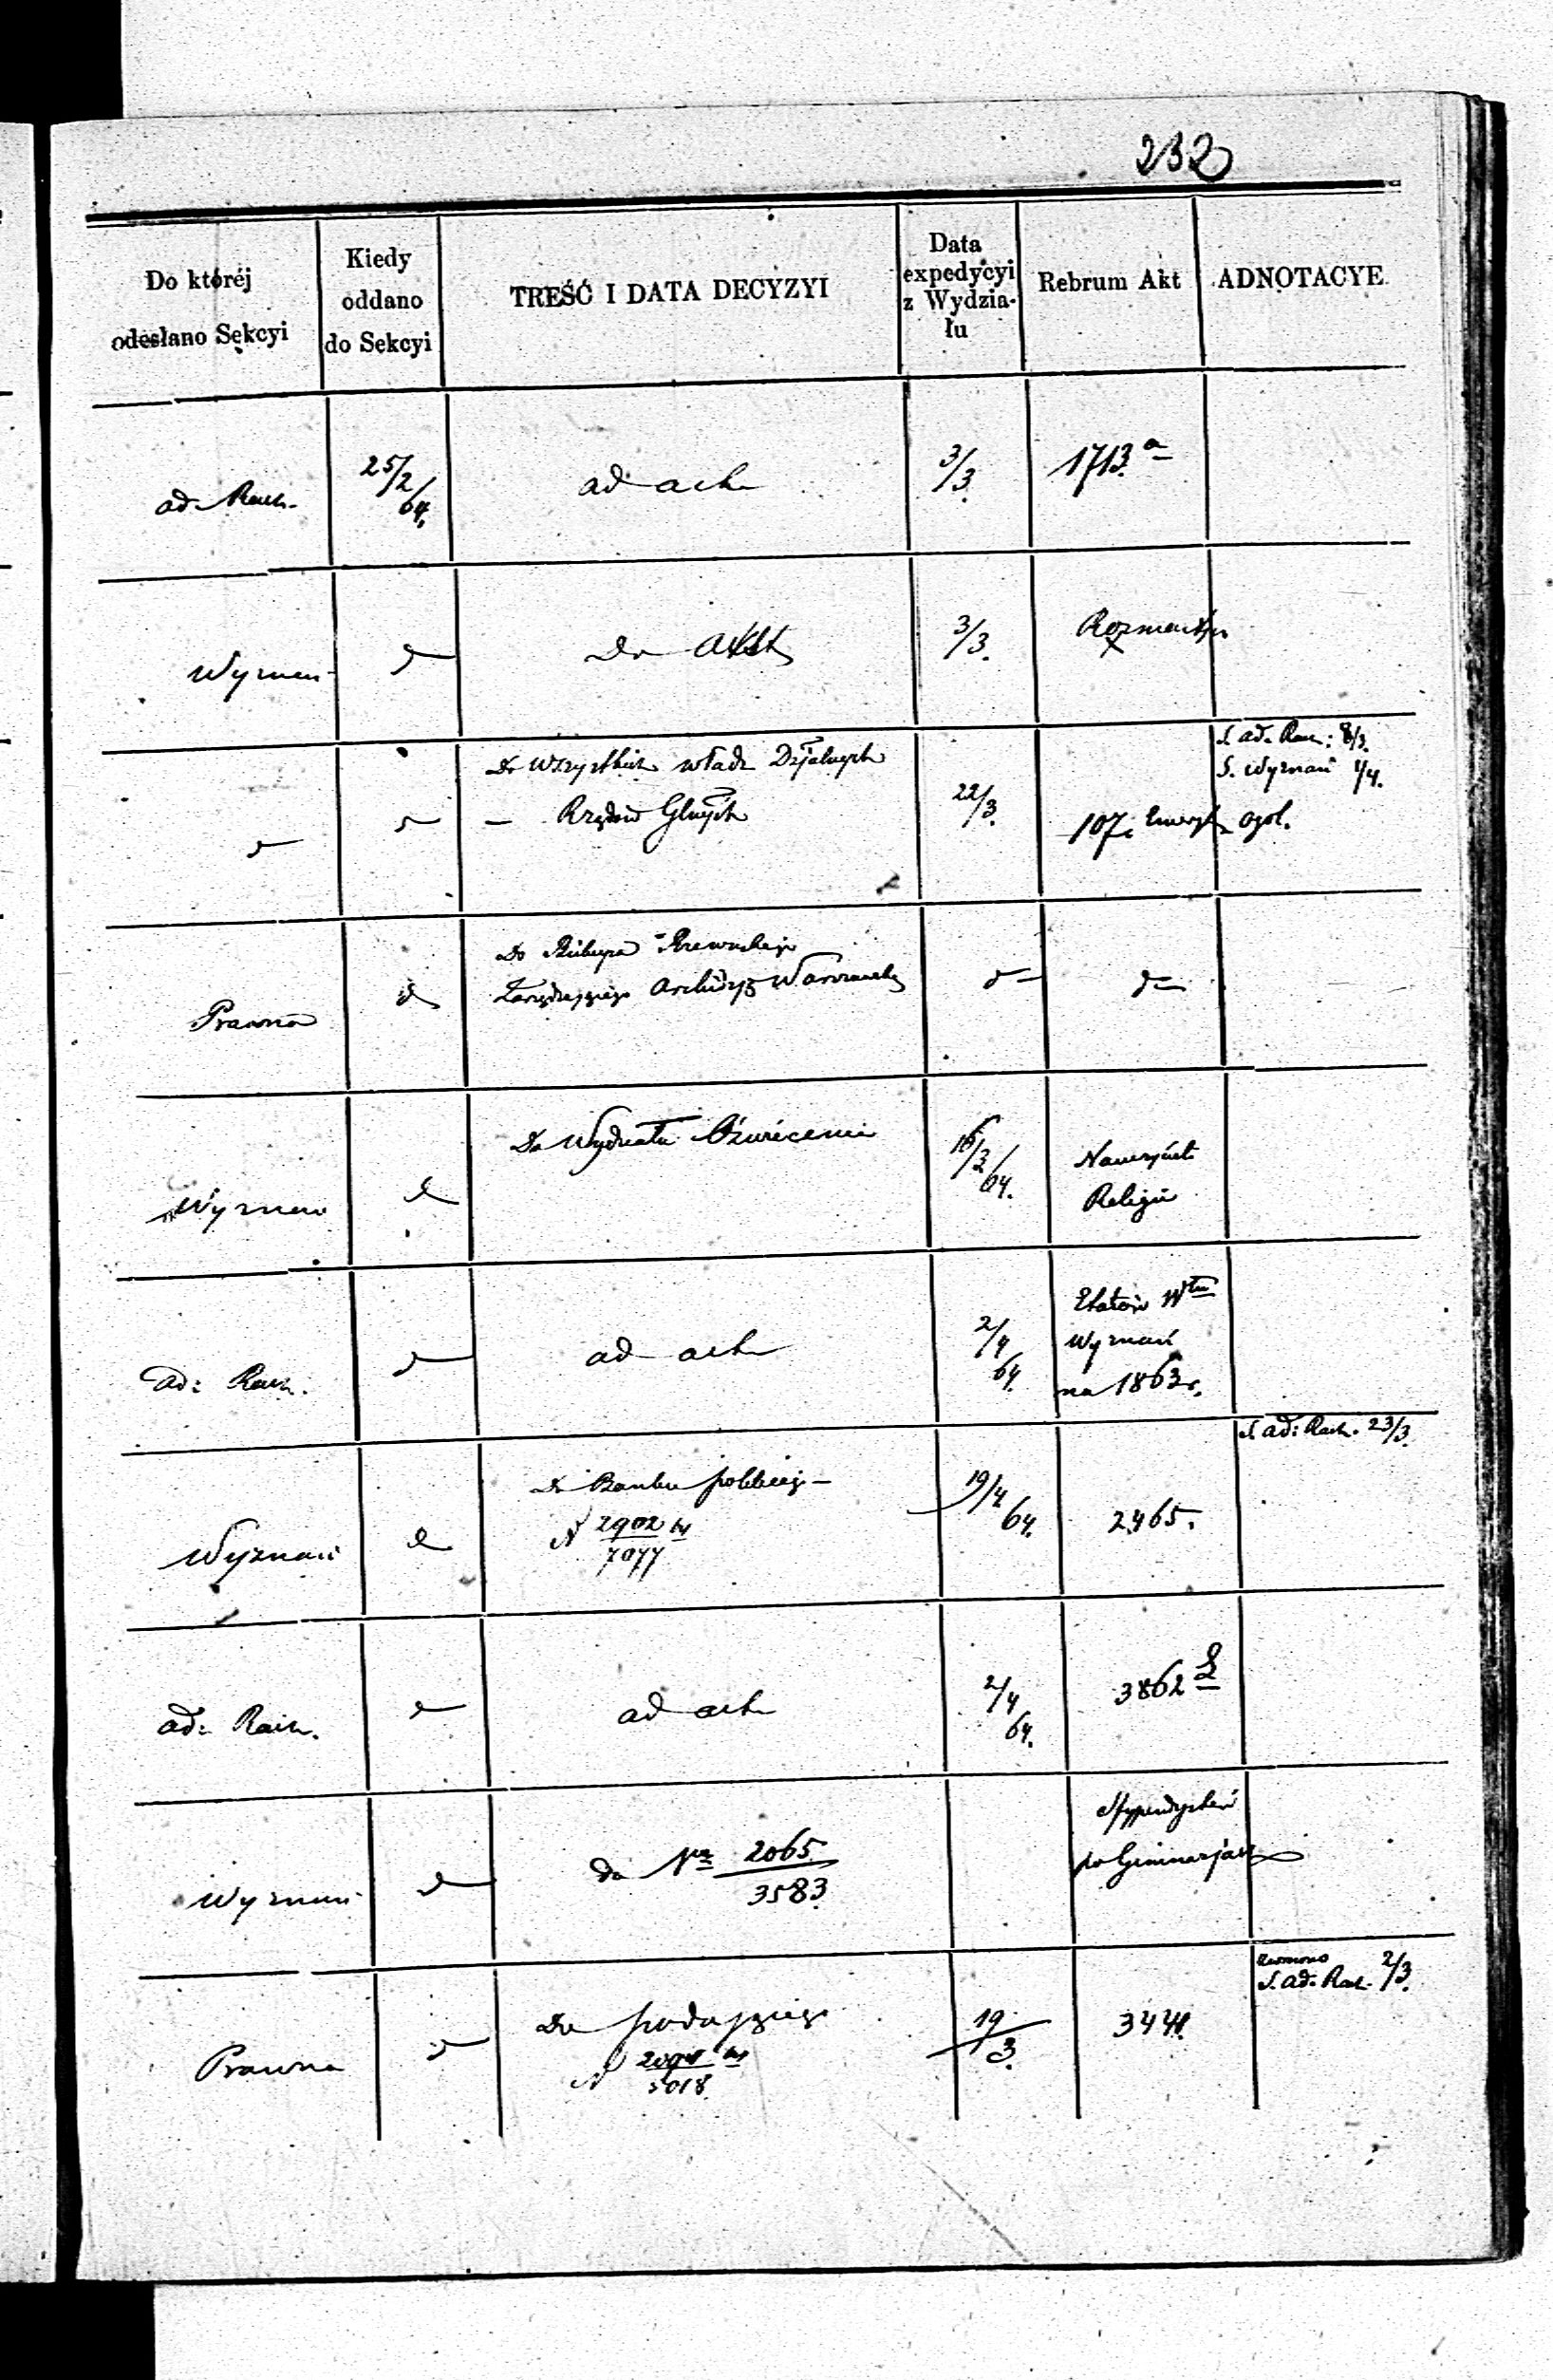 232
Do któréj
odesłano Sekcyi
Kiedy
oddano
do Sekcyi
TREŚĆ I DATA DECYZYI
Data
expedycyi
z Wydzia-
łu
Rebrum Akt
ADNOTACYE
ad. Rach.
25/2
64.
ad acta
3/3.
1713. a
Wyznań
Do Akt
3/3.
S. ad. Rach: 8/3.
S. Wyznań 1/4.
Do Wszystkich władz
— Rządów
22/3.
107. Emeryt. ogól.
Prawna
Do Biskupa Rzewuskiego
Zarządzającego Archidyec Warszawską
Wyznań
Do Wydziału Oświecenia
16/3/64.
Religii
ad: Rach.
ad acta
2/4
64.
Etatów Włu
Wyznań
na 1863 r.
S. ad: Rach. 23/3.
Wyznań
Do Banku polskiego —
N 2902
7077
19/4
64.
2465.
ad: Rach.
ad acta
2/4
64.
3862
Wyznań
do Nr 2065
3583
Stypendystów
po
Prawna
Do podającego
N
5018.
19/3.
S. ad. Rach. 2/3.